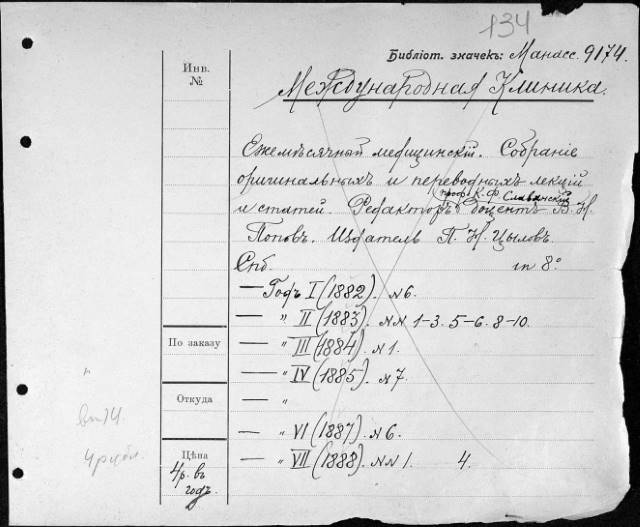 134
Библіот. значекъ: Манасс. 9174.
Инв.
№
Международная Клиника.
Ежемѣсячный медицинскій. Собраніе
оригинальныхъ и переводныхъ лекцій
проф. К. Ф. Славянскій
и статей. Редакторъ доцентъ В. Н.
Поповъ. Издатель П. Н. Цыловъ.
Спб. in 8°
— Годъ I (1882). N 6.
— " II (1883). NN 1-3. 5-6. 8-10.
По заказу
— " III (1884). N 1.
— " IV (1885). N 7.
Откуда
— "
— " VI (1887). N 6.
Цѣна
4 р. въ
годъ.
— " VII (1888). NN 1. 4.
4 рубл.